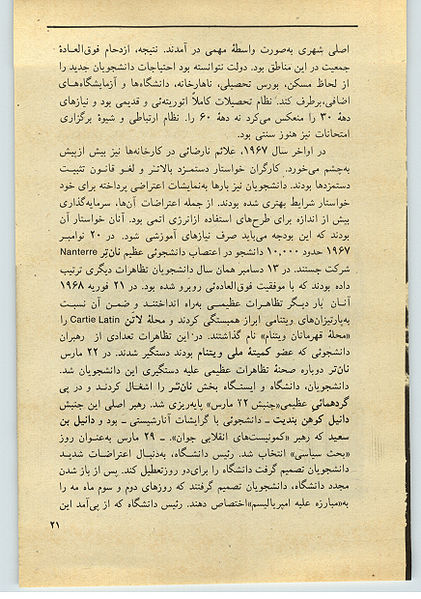 اصلی شهری به‌صورت واسطهٔ مهمی در آمدند. نتیجه، ازدحام فوق‌العادهٔ
جمعیت در این مناطق بود. دولت نتوانسته بود احتیاجات دانشجویان جدید را
از لحاظ مسکن، بورس تحصیلی، ناهارخانه، دانشگاه‌ها و آزمایشگاه‌های
اضافی، برطرف کند. نظام تحصیلات کاملاً اتوریته‌ئی و قدیمی بود و نیازهای
دههٔ ۳۰ را منعکس می‌کرد نه دههٔ ۶۰ را. نظام ارتباطی و شیوهٔ برگزاری
امتحانات نیز هنوز سنتی بود.
در اواخر سال ۱۹۶۷، علائم نارضائی در کارخانه‌ها نیز بیش ازپیش
به‌چشم می‌خورد. کارگران خواستار دستمزد بالاتر و لغو قانون تثبیت
دستمزدها بودند. دانشجویان نیز بارها به‌نمایشات اعتراضی پرداخته برای خود
خواستار شرایط بهتری شده بودند. از جمله اعتراضات آن‌ها، سرمایه‌گذاری
بیش از اندازه برای طرح‌های استفاده ازانرژی اتمی بود. آنان خواستار آن
بودند که این بودجه می‌باید صرف نیازهای آموزشی شود. در ۲۰ نوامبر
۱۹۶۷ حدود ۱۰،۰۰۰ دانشجو در اعتصاب دانشجوئی عظیم نان‌تر Nanterre
شرکت جستند. در ۱۳ دسامبر همان سال دانشجویان تظاهرات دیگری ترتیب
داده بودند که با موفقیت فوق‌العاده‌ئی روبرو شده بود. در ۲۱ فوریه ۱۹۶۸
آنان بار دیگر تظاهرات عظیمی به‌راه انداختند و ضمن آن نسبت
به‌پارتیزان‌های ویتنامی ابراز همبستگی کردند و محلهٔ لاتن Cartie Latin را
«محلهٔ قهرمانان ویتنام» نام گذاشتند. در این تظاهرات تعدادی از رهبران
دانشجوئی که عضو کمیتهٔ ملی ویتنام بودند دستگیر شدند. در ۲۲ مارس
نان‌تر دوباره صحنهٔ تظاهرات عظیمی علیه دستگیری این دانشجویان شد.
دانشجویان، دانشگاه و ایستگاه بخش نان‌تر را اشغال کردند و در پی
گردهمائی عظیمی «جنبش ۲۲ مارس» پایه‌ریزی شد. رهبر اصلی این جنبش
دانیل کوهن بندیت ـ دانشجوئی با گرایشات آنارشیستی ـ بود و دانیل بن
سعید که رهبر «کمونیست‌های انقلابی جوان». ـ ۲۹ مارس به‌عنوان روز
«بحث سیاسی» انتخاب شد. رئیس دانشگاه، به‌دنبال اعتراضات شدید
دانشجویان تصمیم گرفت دانشگاه را برای‌دو روزتعطیل کند. پس از باز شدن
مجدد دانشگاه، دانشجویان تصمیم گرفتند که روزهای دوم و سوم ماه مه را
به‌«مبارزه علیه امپریالیسم» اختصاص دهند. رئیس دانشگاه که از پی‌آمد این
۲۱